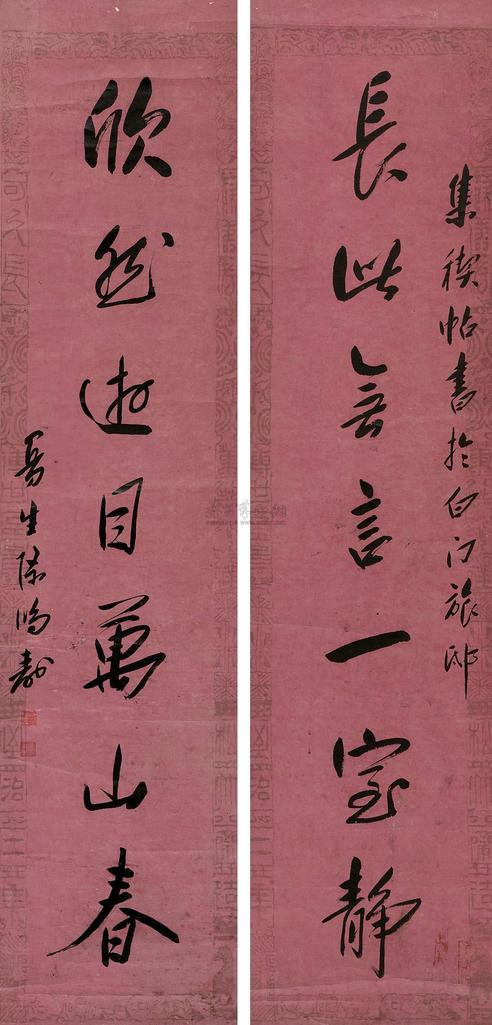 集禊帖書於白門旅邸
長此無言一室靜
欣然遊目萬山春
曼生陳鴻壽